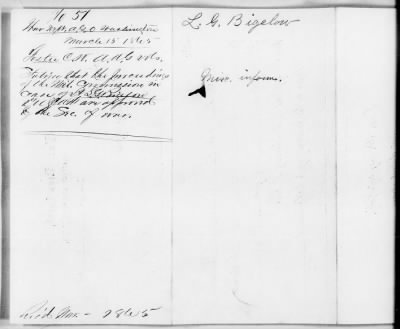 To 51
War Dept. A.G.O. Washington
March 15 1865
Foster C.W. A.A.G. Vols.
that the proceedings
of the Mil. Commission in
case of
are approved
by the Sec. of War.
L. G. Bigelow
inform.
Rec'd 1865